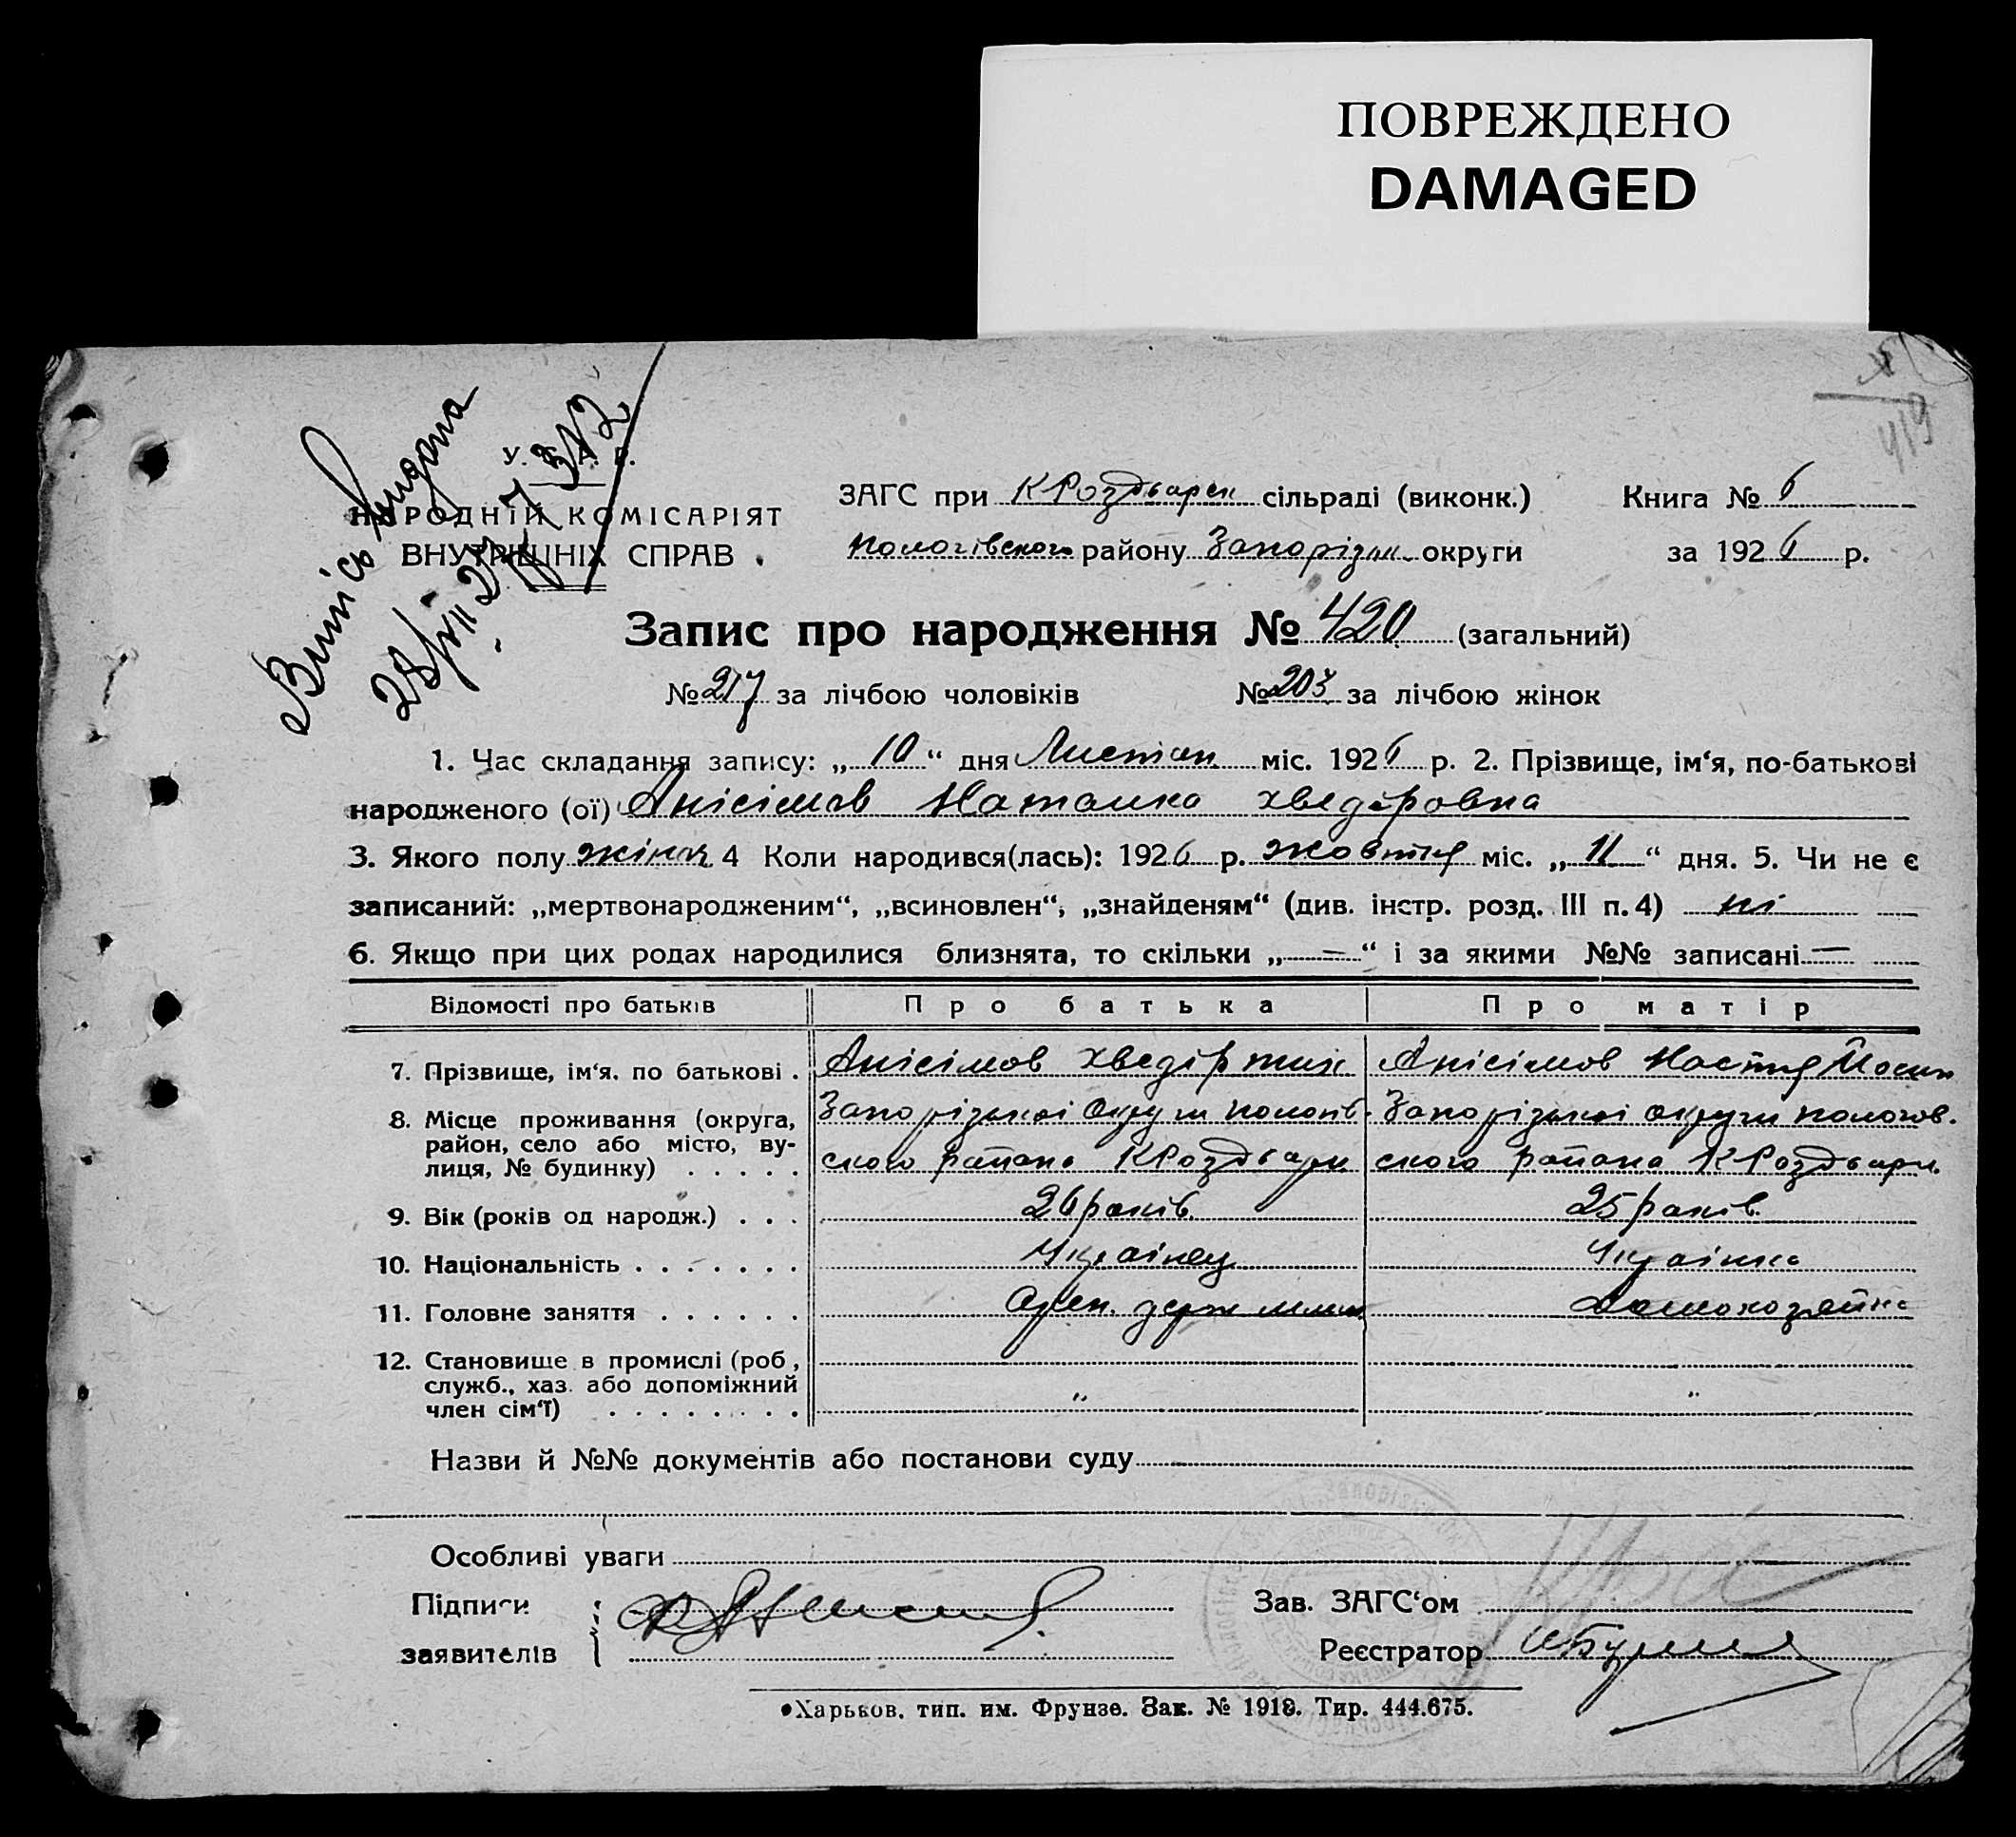 ПОВРЕЖДЕНО
DAMAGED
419
Випісь видана
28/VII 27 р. 312
У. С. Р. Р.
НАРОДНІЙ КОМІСАРІЯТ
ВНУТРІШНІХ СПРАВ.
ЗАГС при КРоздьарск сільраді (виконк.)
Пологівского району Запорізьк. округи
Книга № 6
за 1926 р.
Запис про народження № 420 (загальний)
№ 217 за лічбою чоловіків № 203 за лічбою жінок
1. Час складання запису: „ 10 “ дня Листоп міс. 1926 р. 2. Прізвище, ім‘я, по-батькові
народженого (ої) Анісімов Наталка Хведіровна
3. Якого полу жіноч 4 Коли народився(лась): 1926 р. жовтня міс. „ 11 “ дня. 5. Чи не є
записаний: „мертвонародженим“, „всиновлен“, „знайденям“ (див. інстр. розд. III п. 4) ні
6. Якщо при цих родах народилися близнята, то скільки „ = “ і за якими №№ записані —
Відомості про батьків Про батька Про матір
7. Прізвище, ім‘я, по батькові . Анісімов Хведір Тих Анісімов Настя Йосип
8. Місце проживання (округа, район, село або місто, вулиця, № будинку) . . . . . Запорізької Округи Пологівского района КРоздьари Запорізької округи пологов.ского района КРоздьари.
9. Вік (років од народж.) . . . 26 років. 25 років.
10. Національність . . . . . . . Українец Українка
11. Головне заняття . . . . . . Орен. держ млин Домохозяйка
12. Становище в промислі (роб., служб., хаз. або допоміжний член сім‘ї) . . . . . . . . „ „
Назви й №№ документів або постанови суду
Особливі уваги
Підписи
заявителів
Зав. ЗАГС‘ом
Реєстратор
Харьков, тип. им. Фрунзе. Зак. № 1918. Тир. 444.675.